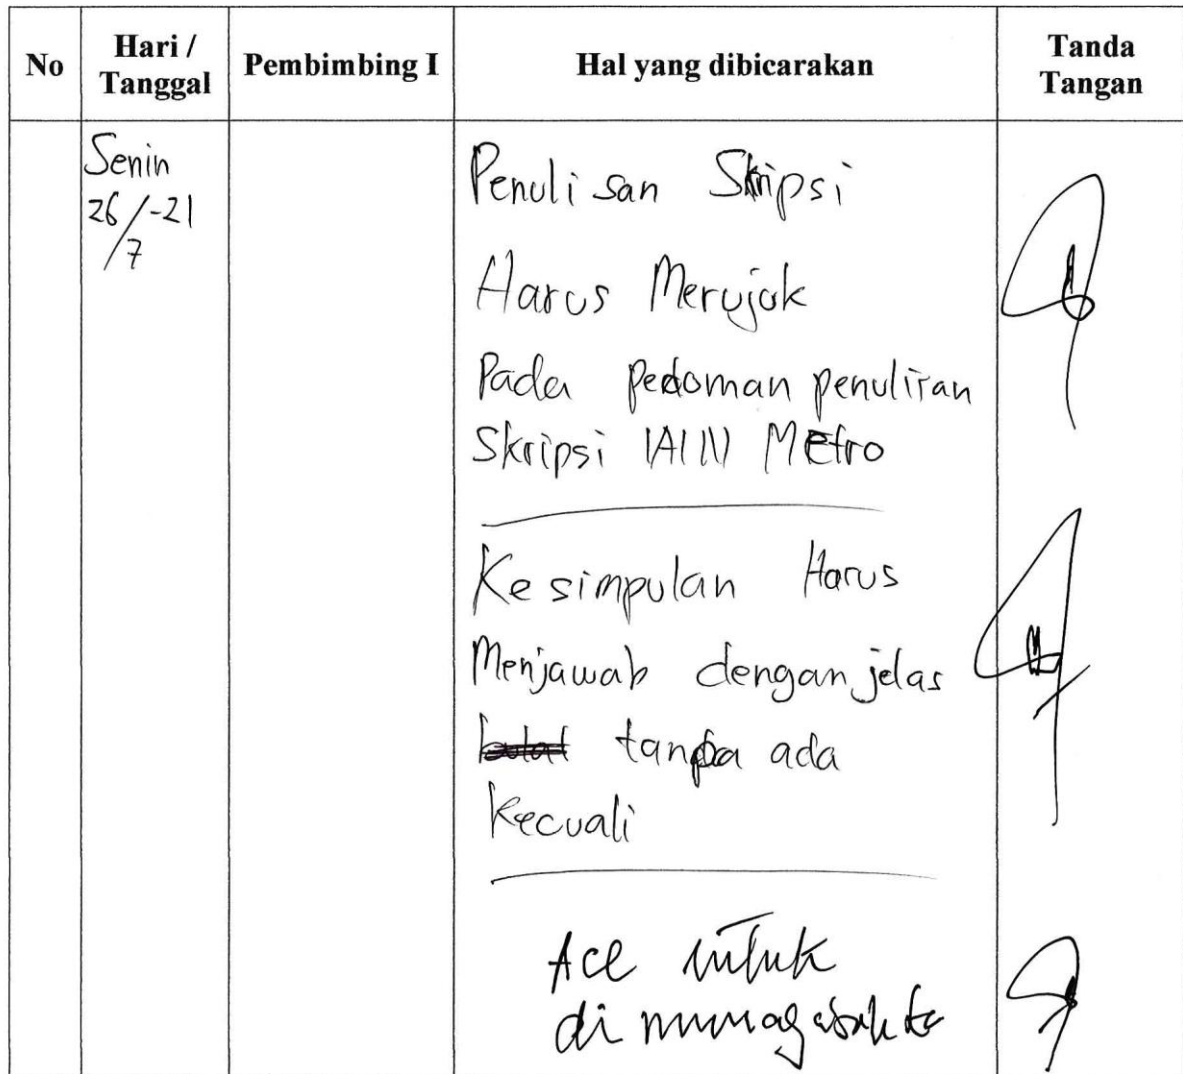 No
Hari /
Tanggal
Pembimbing I
Hal yang dibicarakan
Tanda
Tangan
Senin
26/7-21
Penulisan Skripsi
Harus Merujuk
Pada pedoman penulisan
Skripsi IAIN Metro
Kesimpulan Harus
Menjawab dengan jelas
tanpa ada
kecuali
Acc untuk
di munaqasahkan